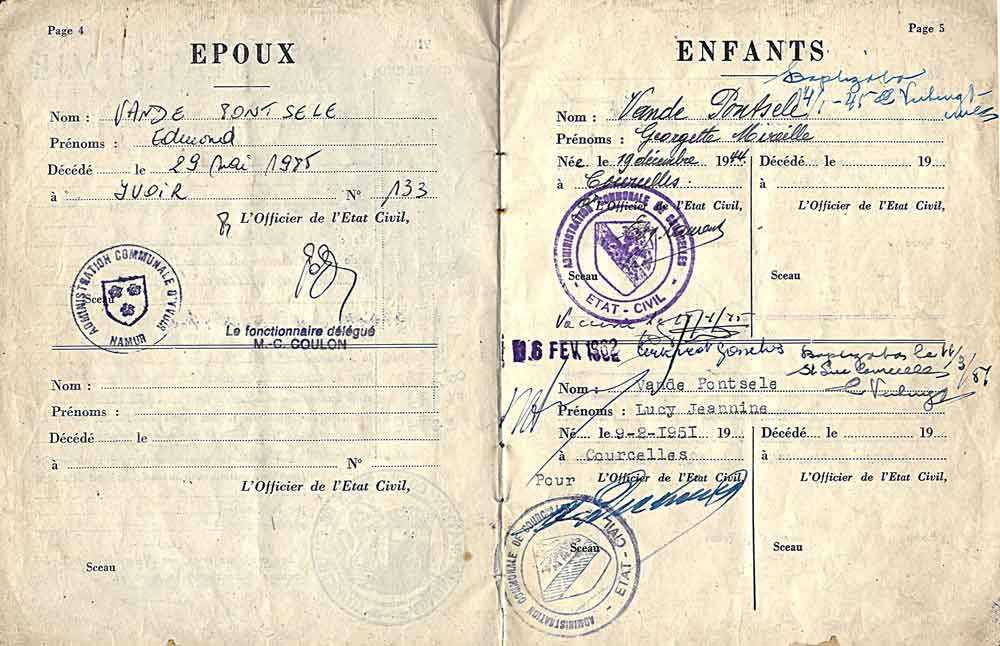 Page 4
EPOUX
Nom : VANDE PONTSELE
Prénoms : Edmond
Décédé le 29 mai 1985
à YVOIR N° 133
L'Officier de l'Etat Civil,
ADMINISTRATION COMMUNALE D'YVOIR
NAMUR
Sceau
Le fonctionnaire délégué
M.-C. COULON
Nom :
Prénoms :
Décédé le
à N°
L'Officier de l'Etat Civil,
Sceau
Page 5
ENFANTS
Nom : Vande Pontsele
Prénoms : Georgette Mireille
Née le 19 décembre 1944 Décédé le 19
à Courcelles. à
L'Officier de l'Etat Civil, L'Officier de l'Etat Civil,
ADMINISTRATION COMMUNALE DE COURCELLES
ETAT - CIVIL
Sceau Sceau
16 FEV 1962
Nom : Vande Pontsele
Prénoms : Lucy Jeannine
Né le 9-2-1951 19 Décédé le 19
à Courcelles à
Pour L'Officier de l'Etat Civil, L'Officier de l'Etat Civil,
ADMINISTRATION COMMUNALE DE COURCELLES
ETAT - CIVIL
Sceau Sceau